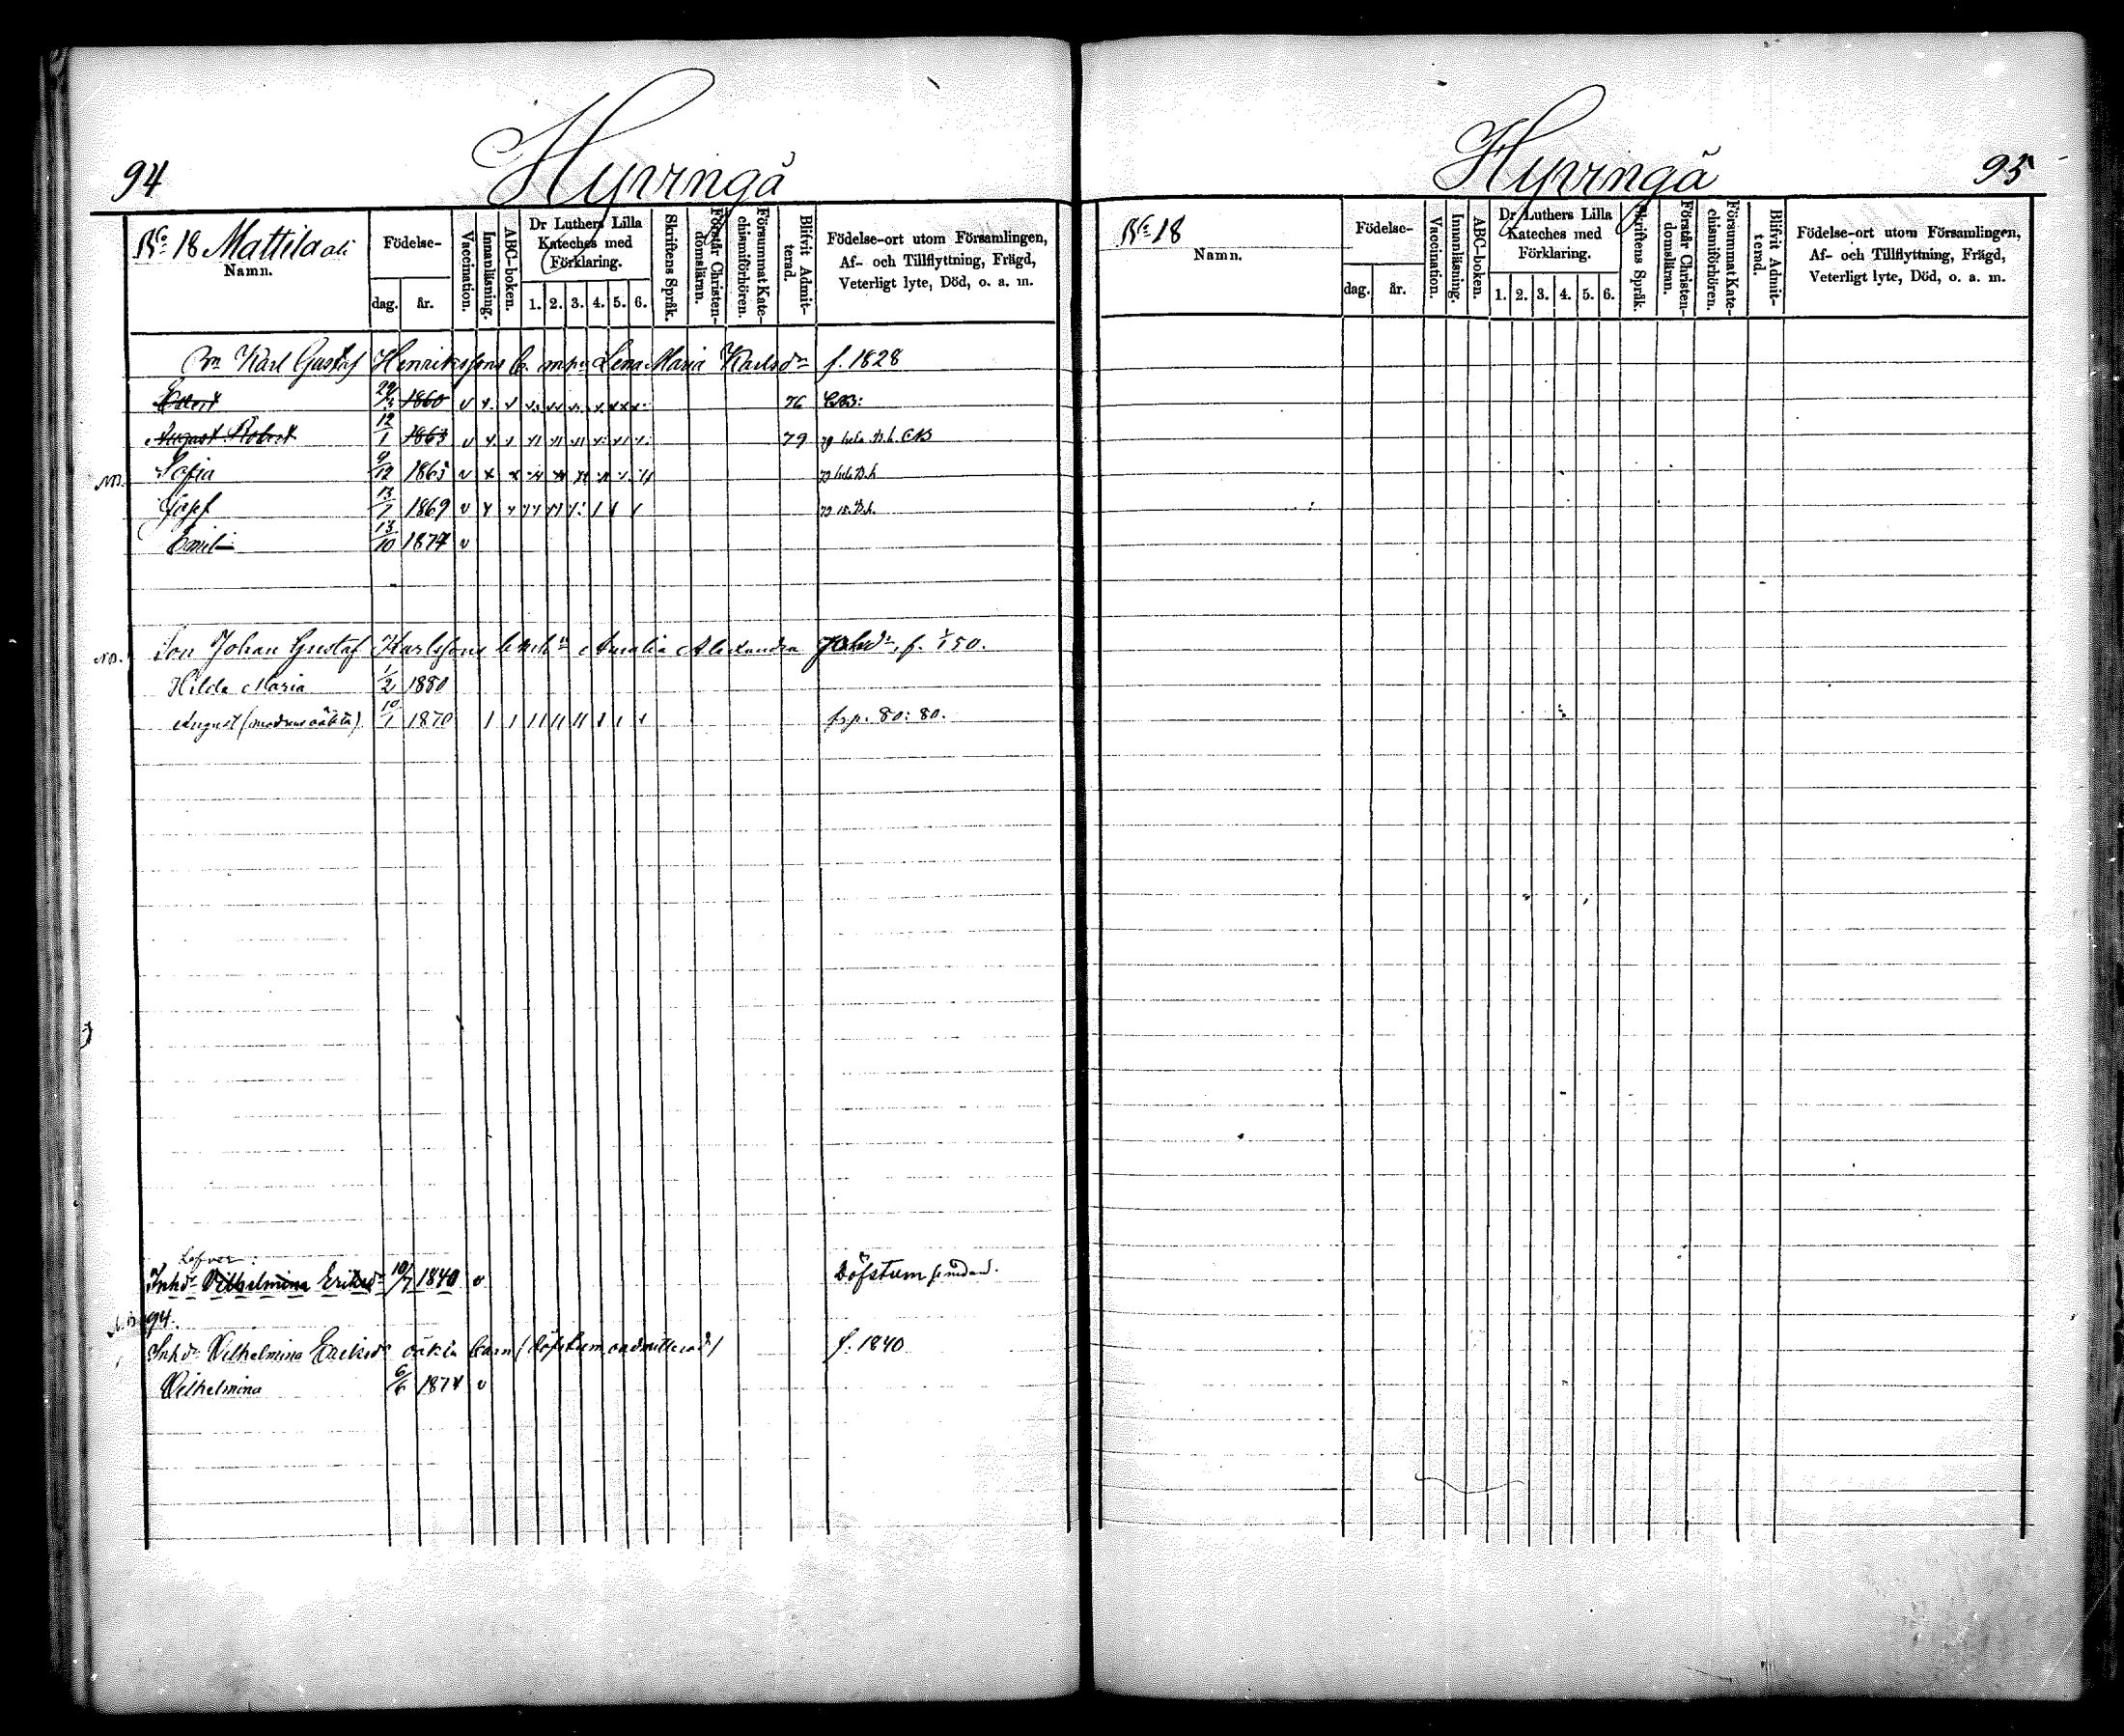 94
Hyvingå
No 18 Mattila ali
Namn.
Födelse-
dag. år.
Vaccination.
Innanläsning.
ABC-boken.
Dr Luthers Lilla
Kateches med
Förklaring.
1. 2. 3. 4. 5. 6.
Skriftens Språk.
Förstår Christen-
domsläran.
Försummat Kate-
chismiförhören.
Blifvit Admit-
terad.
Födelse-ort utom Församlingen,
Af- och Tillflyttning, Frägd,
Veterligt lyte, Död, o. a. m.
Karl Gustaf Henrikssons b. Lena Maria Karlsdr f. 1828
1860 v 76 CNB:
August Robert 12/1 1863 v 79 CNB
NB. Sofia 9/12 1865 v
Josef 13/7 1869 v
Emil 13/10 1874 v
NB. Son Johan Gustaf Karlssons Amalia Alexandra f. 50.
Hilda Maria 1/2 1880
August (modrens oäkta) 10/1 1870 80: 80.
Inhdr Vilhelmina Eriksdr 10/7 1840 v Döfstum
94.
Inhdr Vilhelmina Eriksdr oäkta barn (döfstum oadmitterad) f. 1840
Vilhelmina 6/6 1874 v
Hyvingå
95
No 18
Namn.
Födelse-
dag. år.
Vaccination.
Innanläsning.
ABC-boken.
Dr Luthers Lilla
Kateches med
Förklaring.
1. 2. 3. 4. 5. 6.
Skriftens Språk.
Förstår Christen-
domsläran.
Försummat Kate-
chismiförhören.
Blifvit Admit-
terad.
Födelse-ort utom Församlingen,
Af- och Tillflyttning, Frägd,
Veterligt lyte, Död, o. a. m.